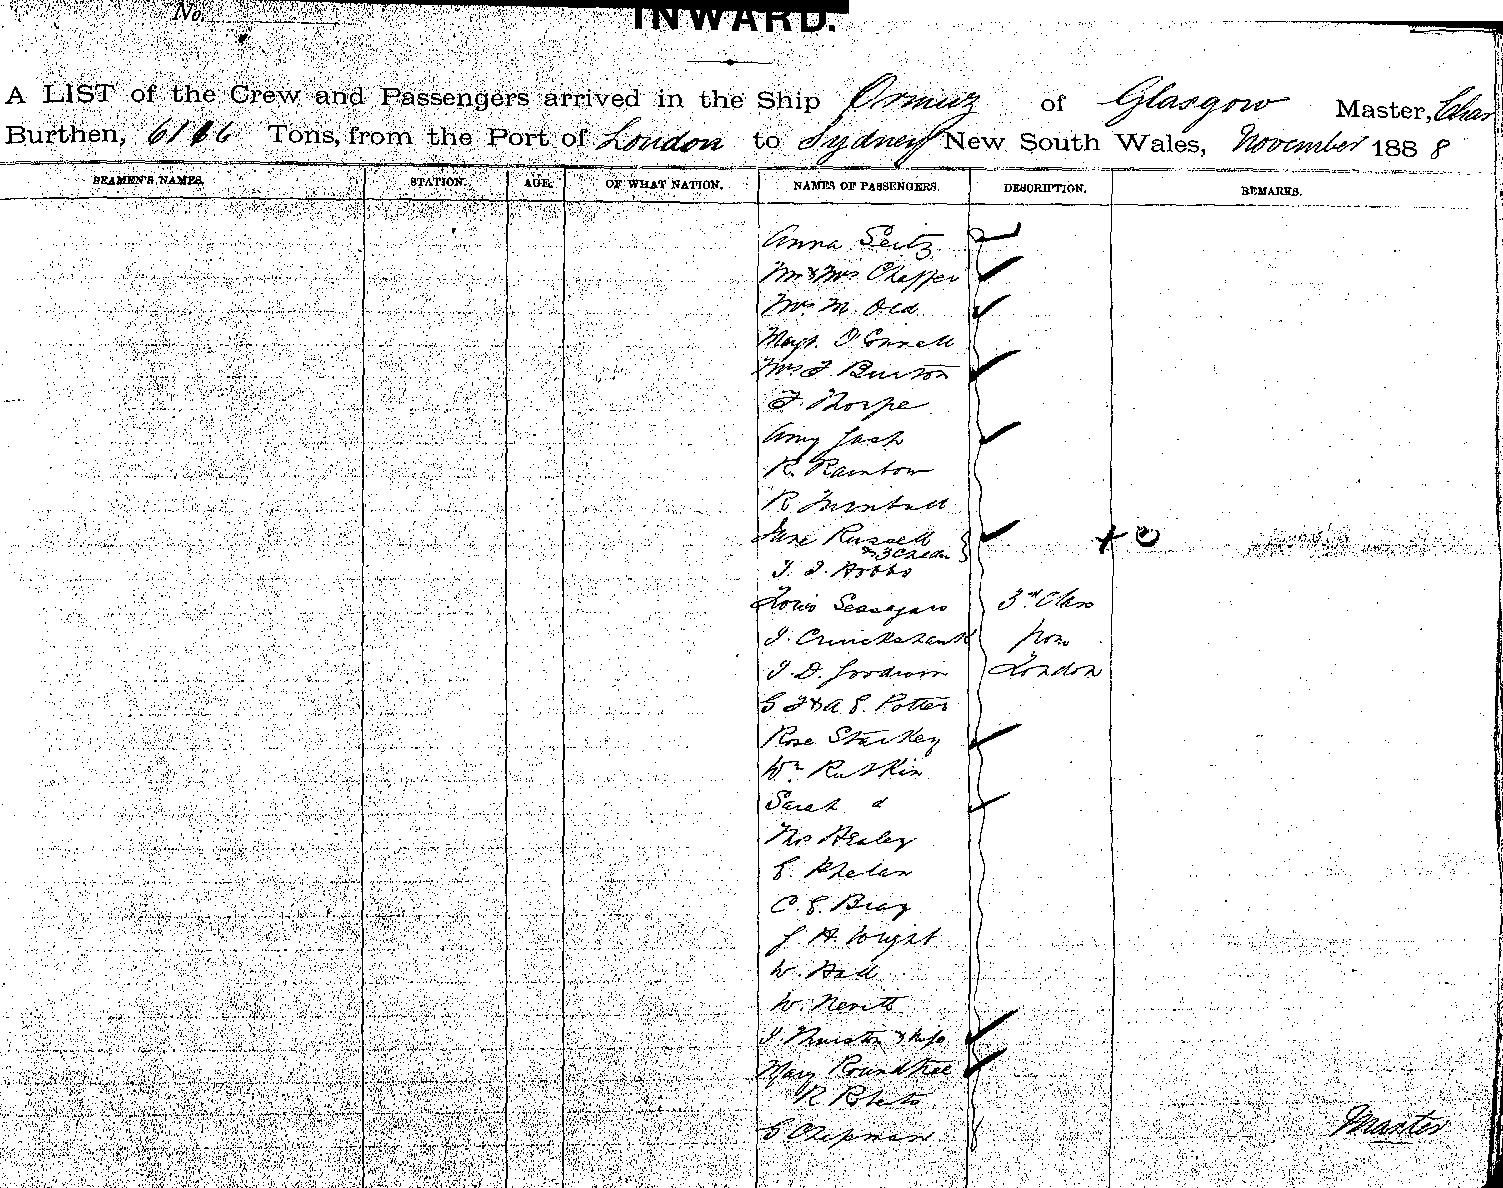 No.
INWARD.
A LIST of the Crew and Passengers arrived in the Ship Ormuz of Glasgow Master, Chas
Burthen, 6116 Tons, from the Port of London to Sydney New South Wales, November 1888
SEAMEN'S NAMES. STATION. AGE. OF WHAT NATION. NAMES OF PASSENGERS. DESCRIPTION. REMARKS.
Anna Seitz
Mr & Mrs Cheffer
Mrs M. Old
Margt. O'Connell
Mrs J. Burton
F. Thorpe
Amy
R. Rainbow
R.
Jane Russell
& 3 Chdn
J. J. Hobbs
Louis 3rd Class
J. Cruickshank from
J. D. Goodwin London
G J & A E. Potter
Rose Starkey
Wm. Ruskin
Sarah d
Thos Healey
E. Phelan
C. E. Bray
J. H. Wright
W. Hall
W. Nevitt
J. Thurston & Wife
Mary Roundtree
R Roberts
G Chipman
Master